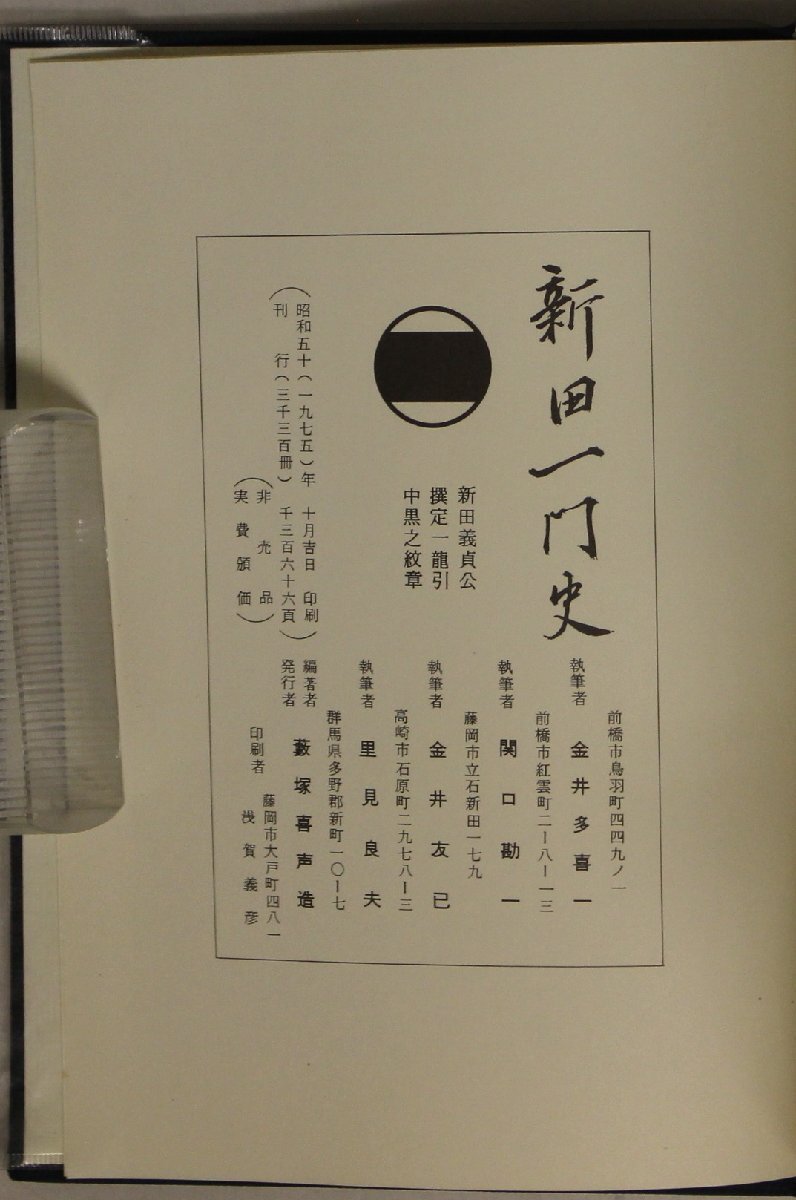 新田一門史
新田義貞公
撰定一龍引
中黒之紋章
(昭和五十(一九七五)年 十月吉日 印刷
刊行(三千三百冊) 千三百六十六頁)
(非売品
実費頒価)
前橋市鳥羽町四四九ノ一
執筆者 金井多喜一
前橋市紅雲町二ー八ー一三
執筆者 関口勘一
藤岡市立石新田一七九
執筆者 金井友已
高崎市石原町二九七八ー三
執筆者 里見良夫
群馬県多野郡新町一〇ー七
編著者
発行者 藪塚喜声造
藤岡市大戸町四八一
印刷者 浅賀義彦